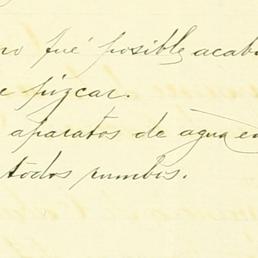 no fué posible acab
e pizcar.
aparatos de agua en
todos rumbos.